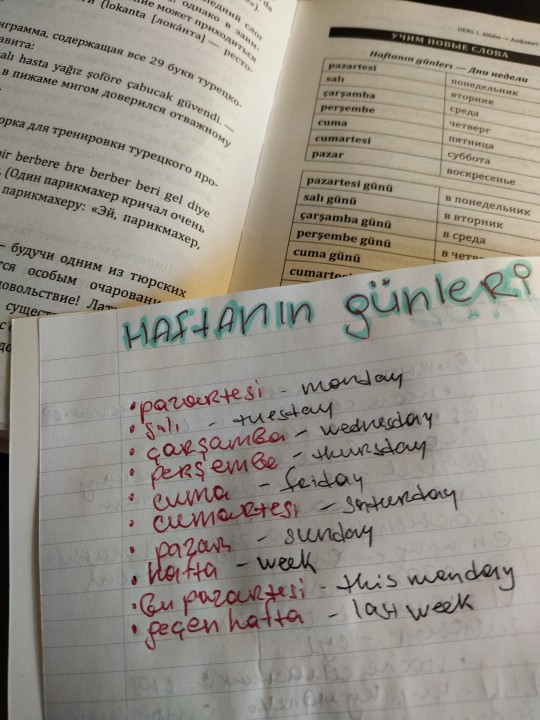 последний слог
однако в заим-
ние может приходиться
ти (lokanta [локáнта] — ресто-
грамма, содержащая все 29 букв турецко-
авита:
alı hasta yağız şoföre çabucak güvendi. —
в пижаме мигом доверился отважному
орка для тренировки турецкого про-
bir berbere bre berber beri gel diye
(Один парикмахер кричал очень
парикмахеру: «Эй, парикмахер,
— будучи одним из тюркских
тся особым очаровани
довольствие! Лат
сущест
DERS 1. Alfabe — Алфавит
УЧИМ НОВЫЕ СЛОВА
Haftanın günleri — Дни недели
pazartesi понедельник
salı вторник
çarşamba среда
perşembe четверг
cuma пятница
cumartesi суббота
pazar воскресенье
pazartesi günü в понедельник
salı günü в вторник
çarşamba günü в среда
perşembe günü в четве
cuma günü
cumartes
HAFTANIN günleri
• pazartesi - monday
• salı - tuesday
• çarşamba - wednesday
• perşembe - thursday
• cuma - friday
• cumartesi - saturday
• pazar - sunday
• hafta - week
• Bu pazartesi - this monday
• geçen hafta - last week